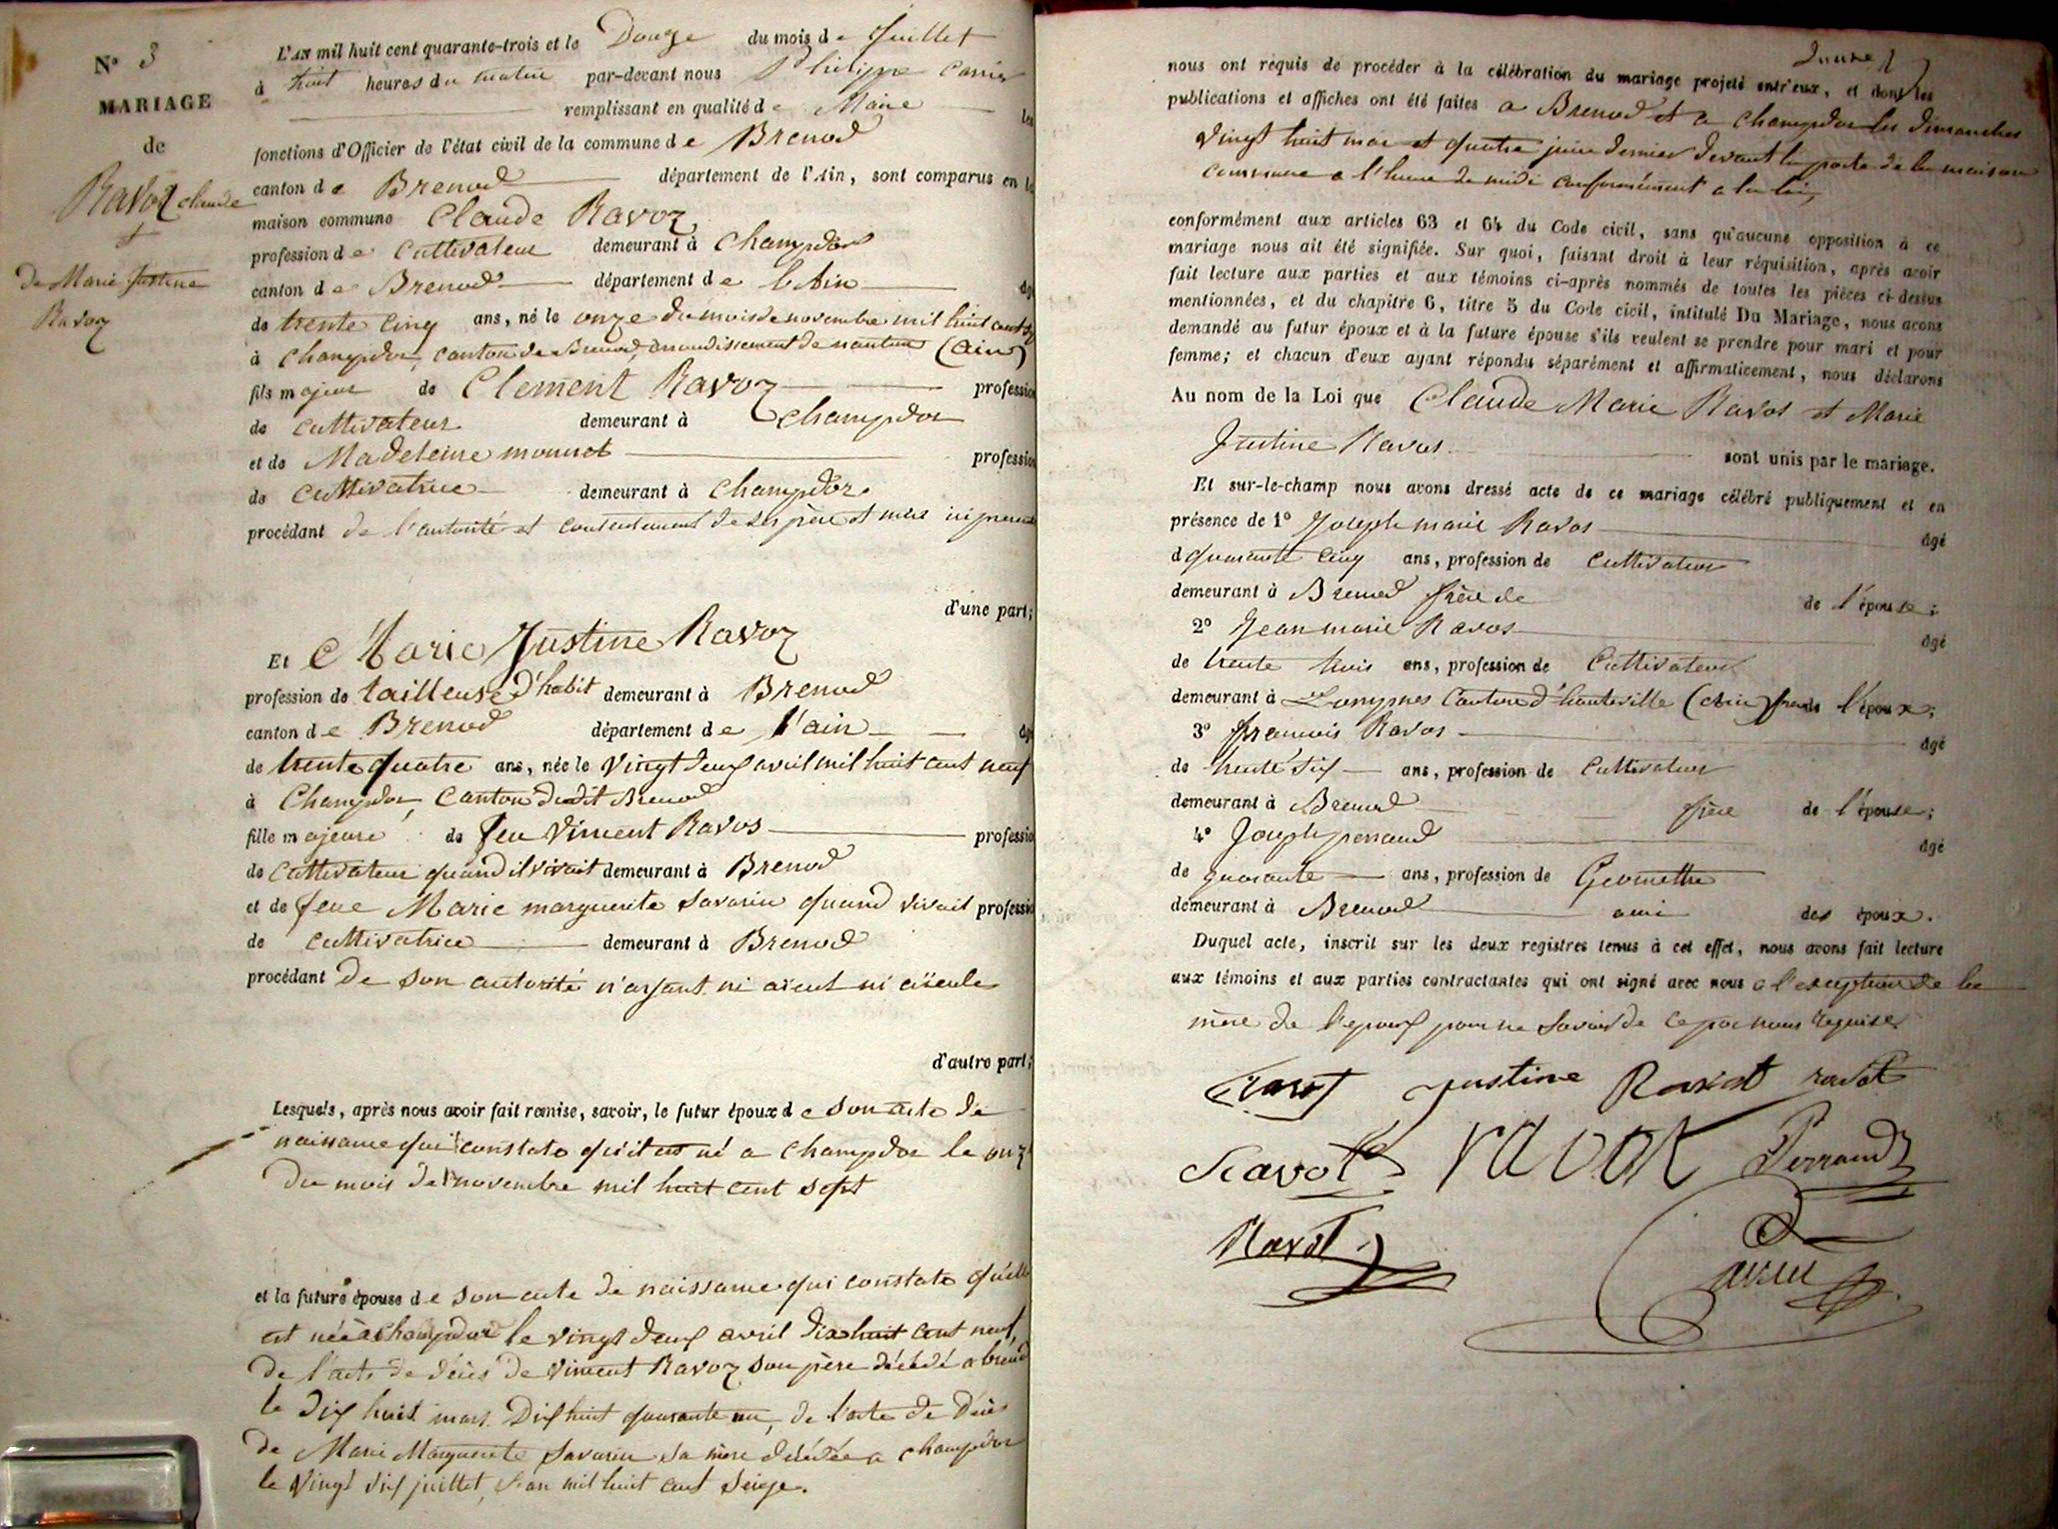 N° 3
MARIAGE
de
Ravoz claude
et
De Marie Justine
Ravoz
L'AN mil huit cent quarante-trois et le Douze du mois de Juillet
à huit heures du matin par-devant nous Philippe Carrier
remplissant en qualité de Maire les
fonctions d'Officier de l'état civil de la commune de Brenod
canton de Brenod département de l'Ain, sont comparus en la
maison commune Claude Ravoz
profession de Cultivateur demeurant à Champdor
canton de Brenod département de l'Ain âgé
de trente cinq ans, né le onze du mois de novembre mil huit cent sept
à Champdor, canton de Brenod, arrondissement de nantua (Ain)
fils majeur de Clement Ravoz profession
de cultivateur demeurant à Champdor
et de Madeleine monnet profession
de cultivatrice demeurant à Champdor
procédant de l'autorité et consentement de ses père et mère ici présents
d'une part;
Et Marie Justine Ravoz
profession de tailleuse d'habit demeurant à Brenod
canton de Brenod département de l'ain âgé
de trente quatre ans, née le vingt deux avril mil huit cent neuf
à Champdor, Canton dudit Brenod
fille majeure de feu Vincent Ravos profession
de Cultivateur quand il vivait demeurant à Brenod
et de feue Marie marguerite Savarin quand vivait profession
de cultivatrice demeurant à Brenod
procédant de son autorité n'ayant ni aieul ni aïeule
d'autre part;
Lesquels, après nous avoir fait remise, savoir, le futur époux de son acte de
naissance qui constate qu'il est né a Champdor le onze
du mois de novembre mil huit cent sept
et la future épouse de son acte de naissance qui constate qu'elle
est née à Champdor le vingt deux avril dix huit cent neuf,
de l'acte de décès de Vincent Ravoz son père décédé a brenod
le dix huit mars Dix huit quarante un, de l'acte de Décès
de Marie Marguerite Savarin sa mère décédée a champdor
le vingt six juillet, l'an mil huit cent seize.
nous ont requis de procéder à la célébration du mariage projeté entr'eux, et dont les
publications et affiches ont été faites a Brenod et a champdor les dimanches
vingt huit mai et quatre juin dernier devant la porte de la maison
commune a l'heure de midi conformément a la loi,
conformément aux articles 63 et 64 du Code civil, sans qu'aucune opposition à ce
mariage nous ait été signifiée. Sur quoi, faisant droit à leur réquisition, après avoir
fait lecture aux parties et aux témoins ci-après nommés de toutes les pièces ci-dessus
mentionnées, et du chapitre 6, titre 5 du Code civil, intitulé Du Mariage, nous avons
demandé au futur époux et à la future épouse s'ils veulent se prendre pour mari et pour
femme; et chacun d'eux ayant répondu séparément et affirmativement, nous déclarons
Au nom de la Loi que Claude Marie Ravos et Marie
Justine Ravos sont unis par le mariage.
Et sur-le-champ nous avons dressé acte de ce mariage célébré publiquement et en
présence de 1° Joseph marie Ravos âgé
d quarante cinq ans, profession de cultivateur
demeurant à Brenod frère de de l'épouse;
2° Jean marie Ravos âgé
de trente trois ans, profession de Cultivateur
demeurant à Lompnes Canton d'hauteville (Ain) frère de l'époux;
3° francois Ravos âgé
de trente six ans, profession de Cultivateur
demeurant à Brenod frère de l'épouse;
4° Joseph perraud âgé
de quarante ans, profession de Géomettre
demeurant à Brenod ami des époux.
Duquel acte, inscrit sur les deux registres tenus à cet effet, nous avons fait lecture
aux témoins et aux parties contractantes qui ont signé avec nous a l'exception de la
mère de l'époux pour ne savoir de ce par nous requise
Ravot Justine Ravot ravot
Ravot ravot Perraud
Ravot
Carrier